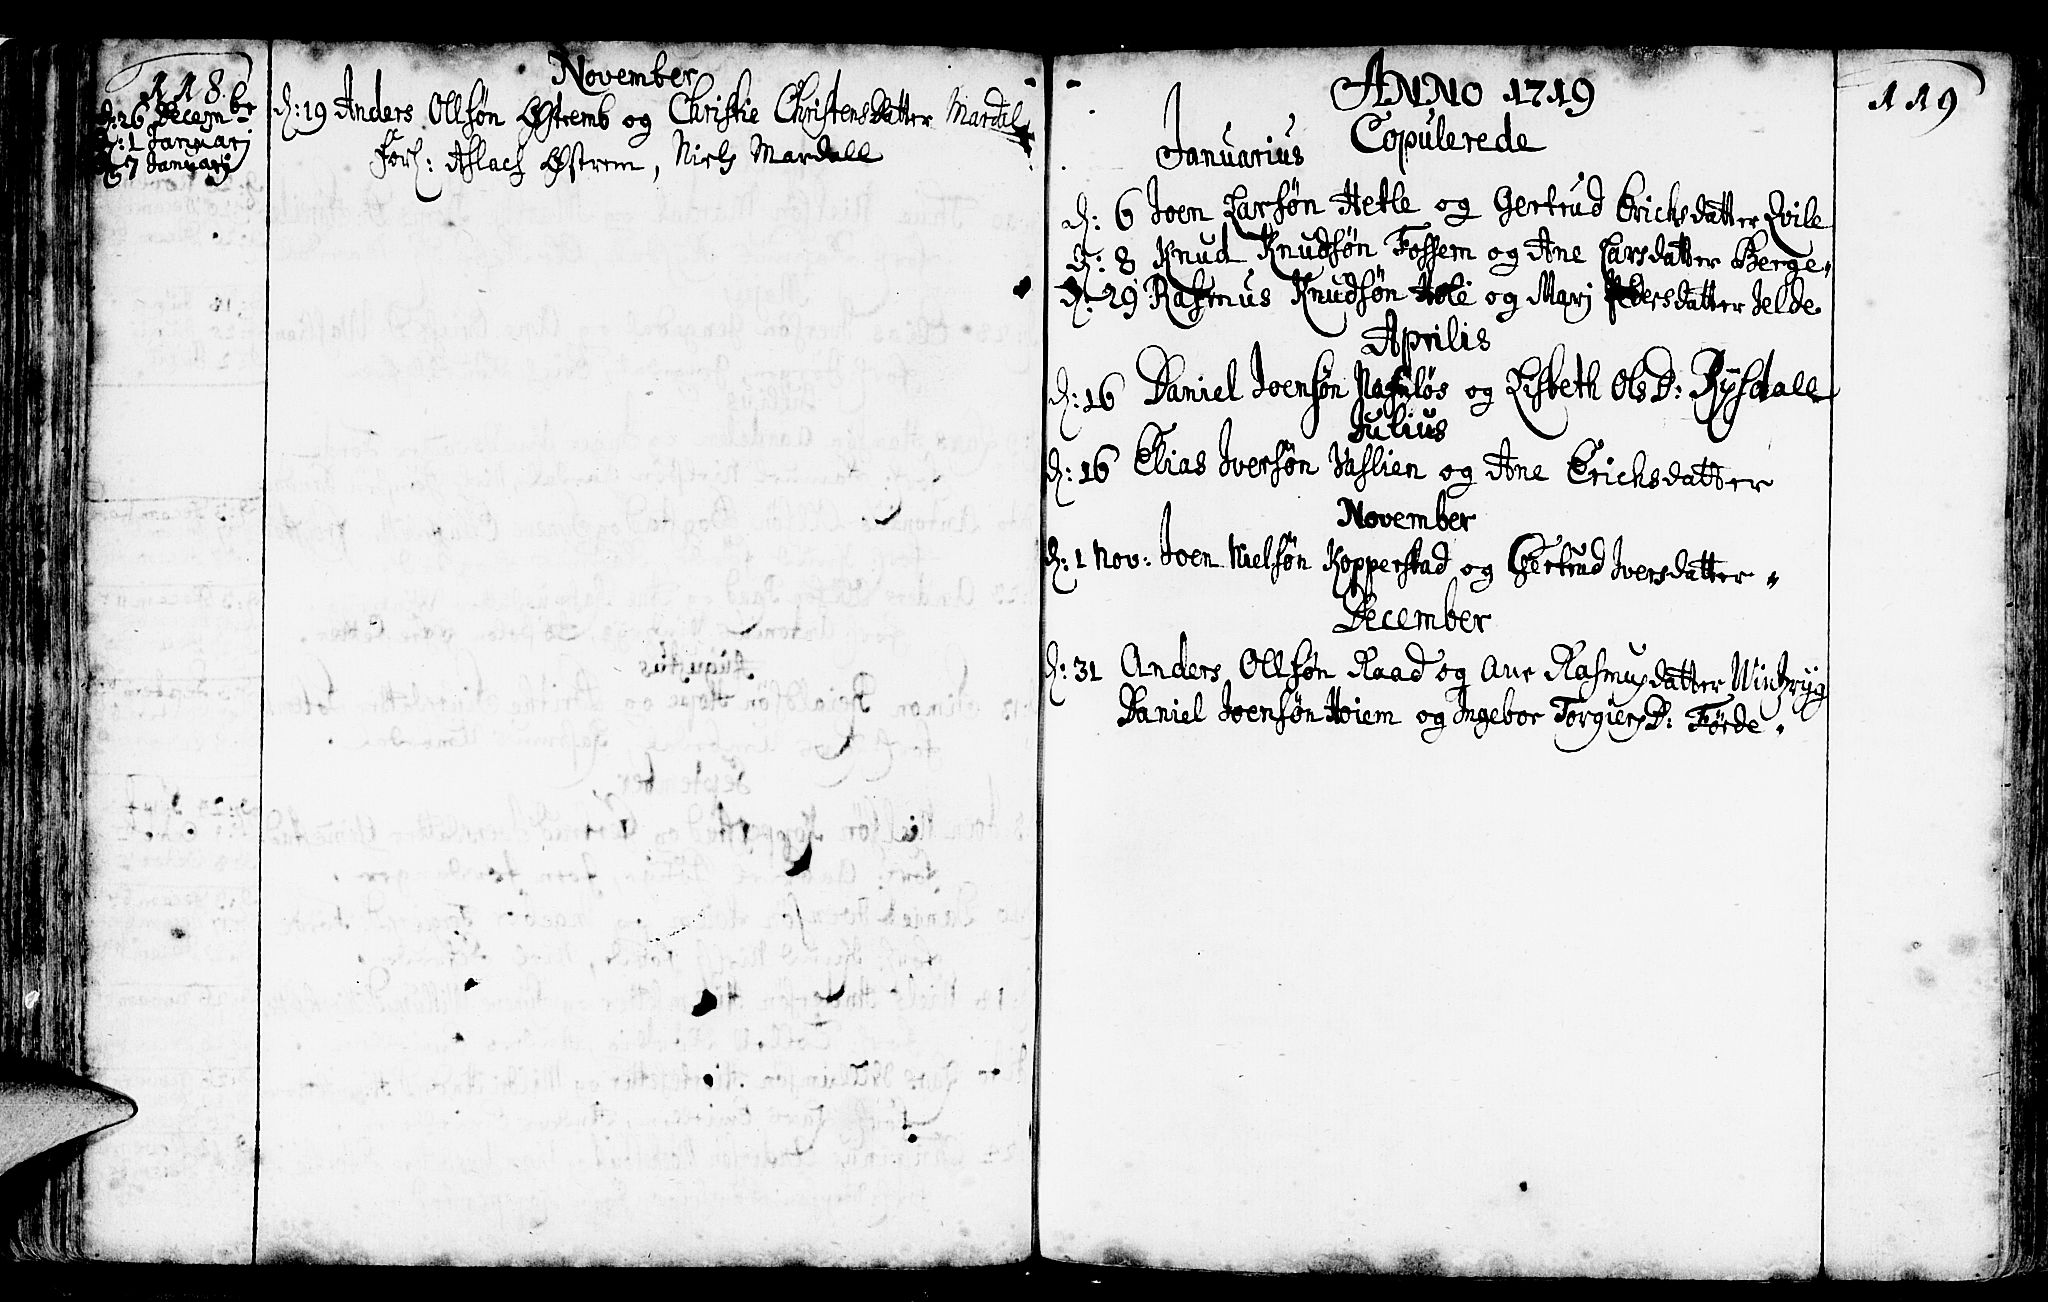 118.
d: 26 Decembr
d: 1 Januarj
d: 7 Januarj
November
d: 19 Anders Ollsøn Østremb og Christie Christensdatter Mardal
Forl: Aslach Østrem, Niels Mardall
119
ANNO 1719
Copulerede
Januarius
d: 6 Joen Larsøn Hetle og Gertrud Erichsdatter Qvile
d: 8 Knud Knudsøn Fossem og Ane Larsdatter Berge
d: 29 Rasmus Knudsøn Hole og Marj Pedersdatter Jelde
Aprilis
d: 16 Daniel Joensøn og Lisbeth OlsD: Rysdall
Julius
d: 16 Elias Iversøn Vaslien og Ane Erichsdatter
November
d: 1 Nov: Joen Nielsøn Kopperstad og Gertrud Iversdatter
December
d: 31 Anders Ollsøn Raad og Ane Rasmusdatter
Daniel Joensøn Hoiem og Ingebor TorgiersD: Førde.